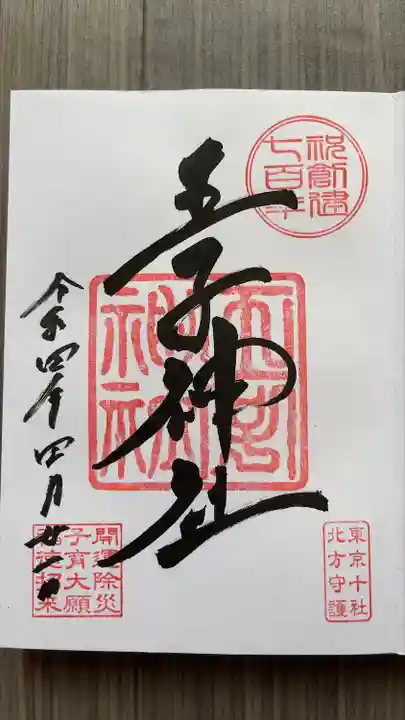 祝創建
七百年
王子神社
王子
神社
東京十社
北方守護
令和四年四月廿
開運除災
子育大願
福徳招来